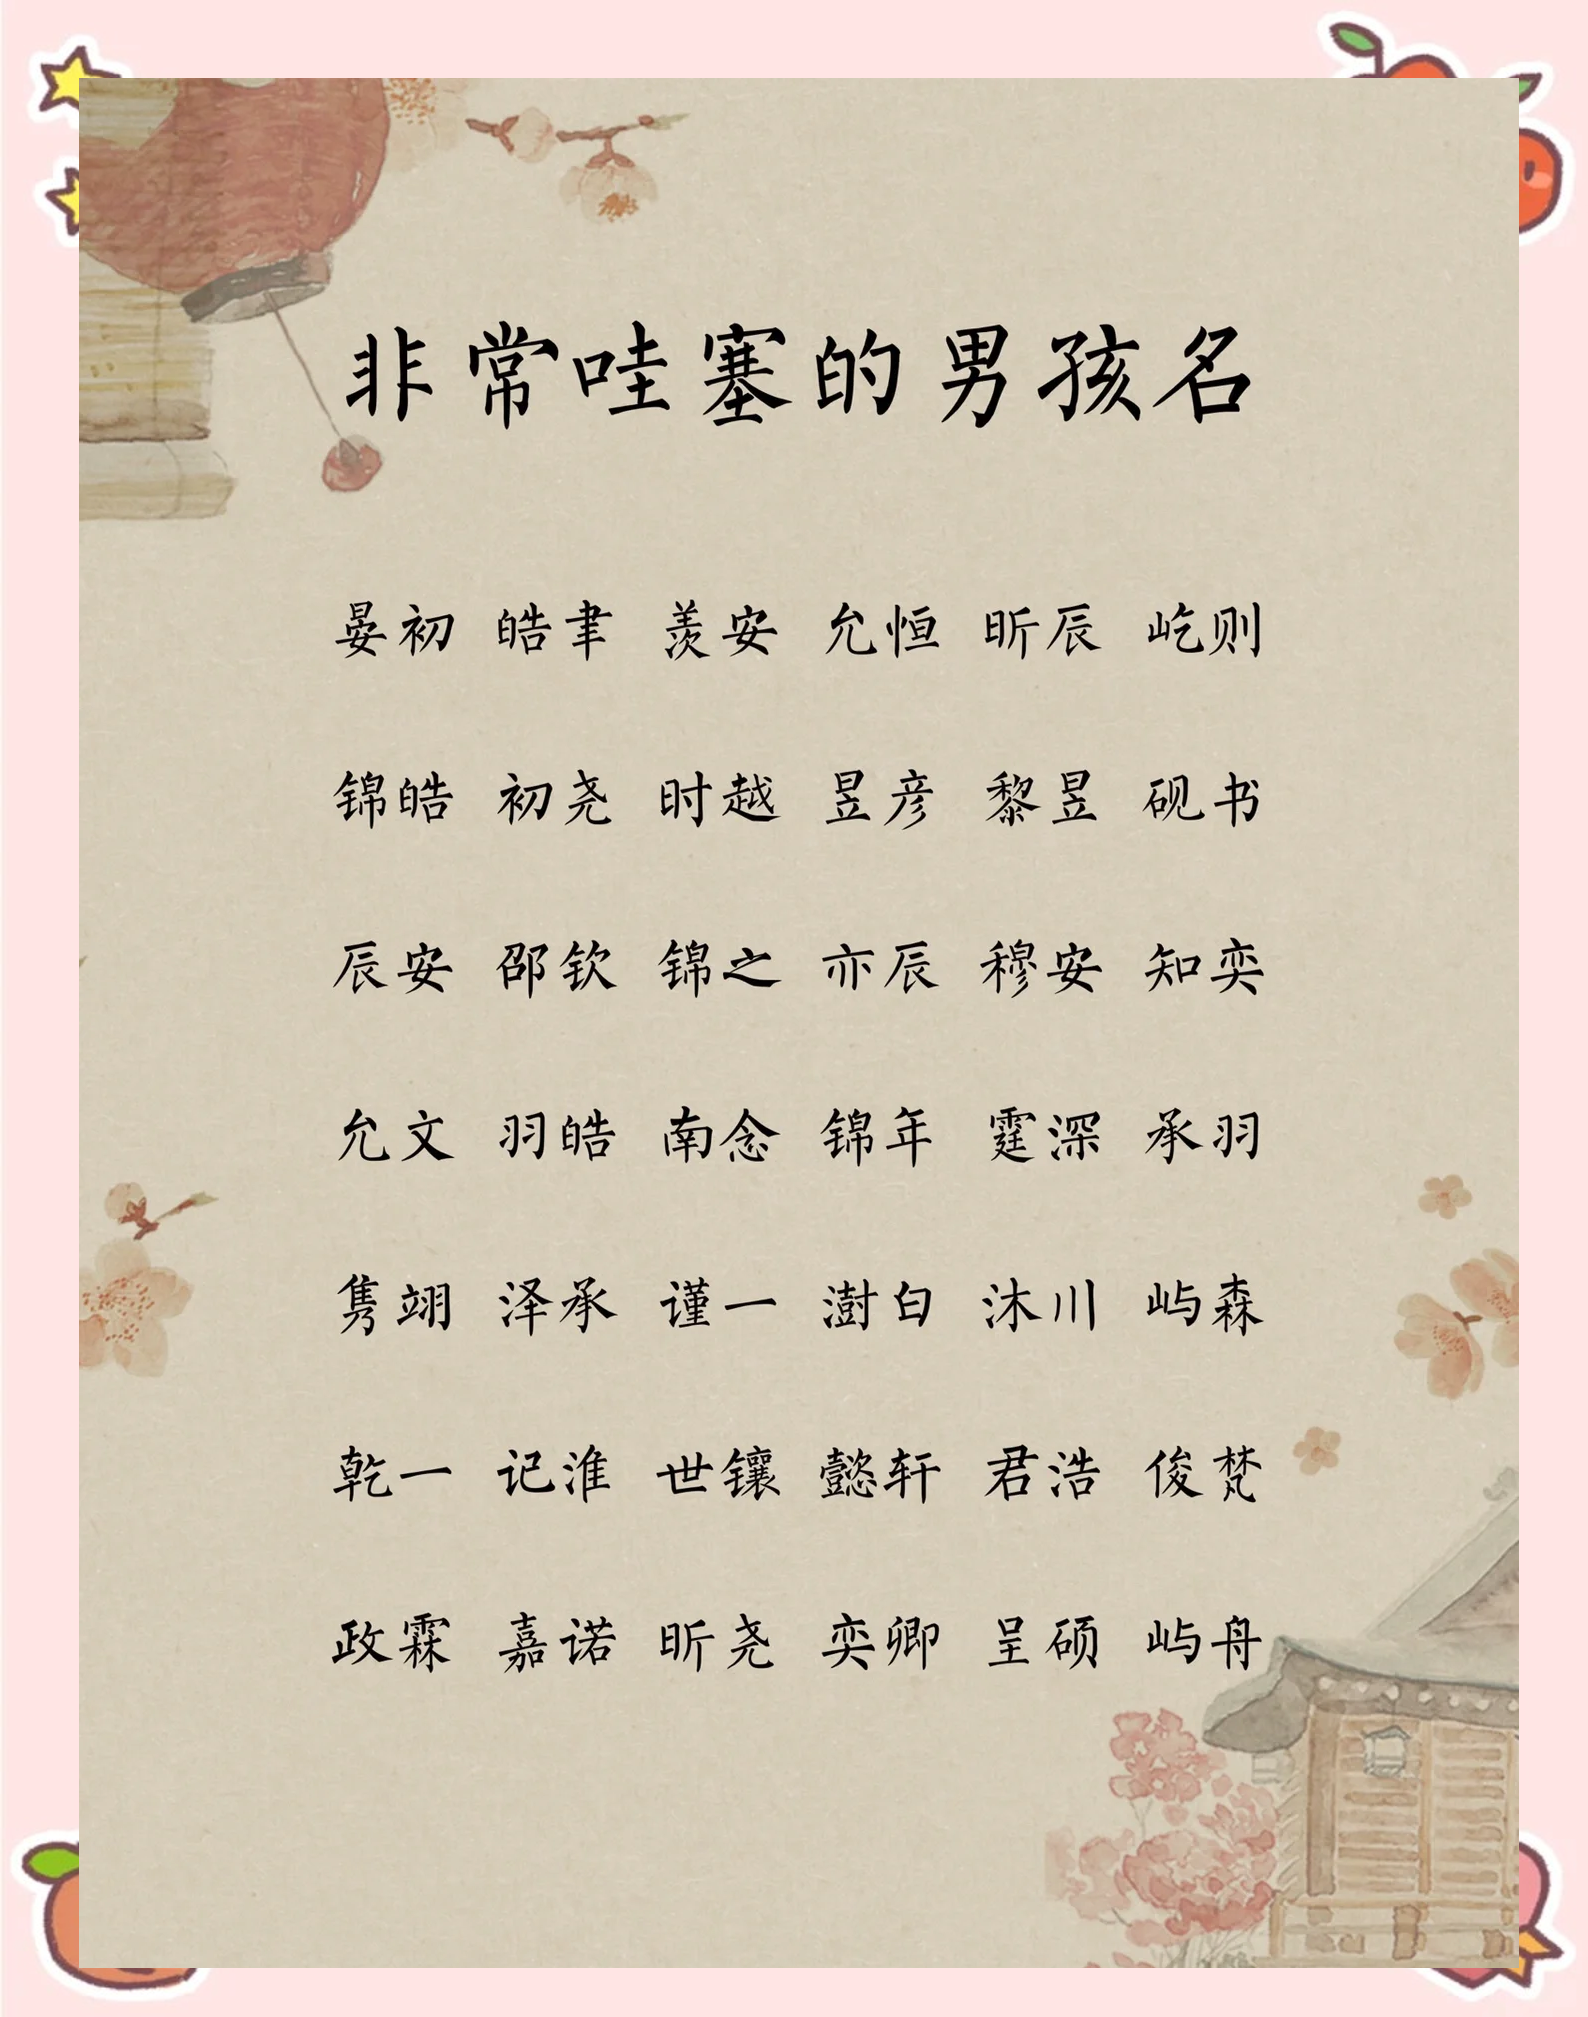 非常哇塞的男孩名
晏初 皓聿 羡安 允恒 昕辰 屹则
锦皓 初尧 时越 昱彦 黎昱 砚书
辰安 邵钦 锦之 亦辰 穆安 知奕
允文 羽皓 南念 锦年 霆深 承羽
隽翊 泽承 谨一 澍白 沐川 屿森
乾一 记淮 世镶 懿轩 君浩 俊梵
政霖 嘉诺 昕尧 奕卿 呈硕 屿舟